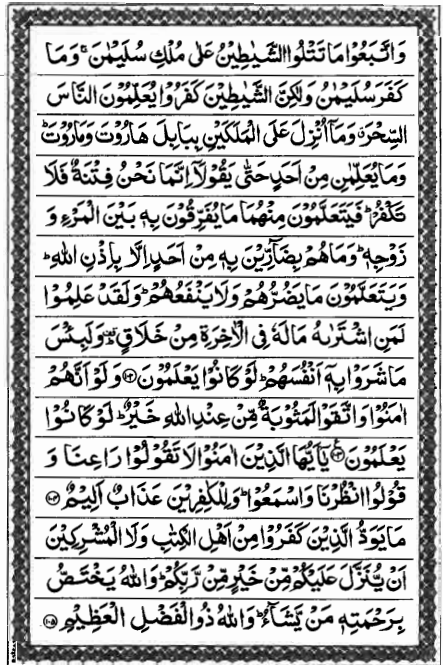 وَاتَّبَعُوْا مَا تَتْلُوا الشَّيٰطِيْنُ عَلٰى مُلْكِ سُلَيْمٰنَ ۚ وَمَا
كَفَرَ سُلَيْمٰنُ وَلٰكِنَّ الشَّيٰطِيْنَ كَفَرُوْا يُعَلِّمُوْنَ النَّاسَ
السِّحْرَ ۗ وَمَاۤ اُنْزِلَ عَلَى الْمَلَكَيْنِ بِبَابِلَ هَارُوْتَ وَمَارُوْتَ ؕ
وَمَا يُعَلِّمٰنِ مِنْ اَحَدٍ حَتّٰى يَقُوْلَاۤ اِنَّمَا نَحْنُ فِتْنَةٌ فَلَا
تَكْفُرْ ؕ فَيَتَعَلَّمُوْنَ مِنْهُمَا مَا يُفَرِّقُوْنَ بِهٖ بَيْنَ الْمَرْءِ وَ
زَوْجِهٖ ؕ وَمَا هُمْ بِضَآرِّيْنَ بِهٖ مِنْ اَحَدٍ اِلَّا بِاِذْنِ اللّٰهِ ؕ
وَيَتَعَلَّمُوْنَ مَا يَضُرُّهُمْ وَلَا يَنْفَعُهُمْ ؕ وَلَقَدْ عَلِمُوْا
لَمَنِ اشْتَرٰىهُ مَا لَهٗ فِى الْاٰخِرَةِ مِنْ خَلَاقٍ ۗ وَلَبِئْسَ
مَا شَرَوْا بِهٖۤ اَنْفُسَهُمْ ؕ لَوْ كَانُوْا يَعْلَمُوْنَ ﴿۱۰۲﴾ وَلَوْ اَنَّهُمْ
اٰمَنُوْا وَاتَّقَوْا لَمَثُوْبَةٌ مِّنْ عِنْدِ اللّٰهِ خَيْرٌ ؕ لَوْ كَانُوْا
يَعْلَمُوْنَ ﴿۱۰۳﴾ يٰۤاَيُّهَا الَّذِيْنَ اٰمَنُوْا لَا تَقُوْلُوْا رَاعِنَا وَ
قُوْلُوا انْظُرْنَا وَاسْمَعُوْا ؕ وَلِلْكٰفِرِيْنَ عَذَابٌ اَلِيْمٌ ﴿۱۰۴﴾
مَا يَوَدُّ الَّذِيْنَ كَفَرُوْا مِنْ اَهْلِ الْكِتٰبِ وَلَا الْمُشْرِكِيْنَ
اَنْ يُّنَزَّلَ عَلَيْكُمْ مِّنْ خَيْرٍ مِّنْ رَّبِّكُمْ ؕ وَاللّٰهُ يَخْتَصُّ
بِرَحْمَتِهٖ مَنْ يَّشَآءُ ؕ وَاللّٰهُ ذُو الْفَضْلِ الْعَظِيْمِ ﴿۱۰۵﴾